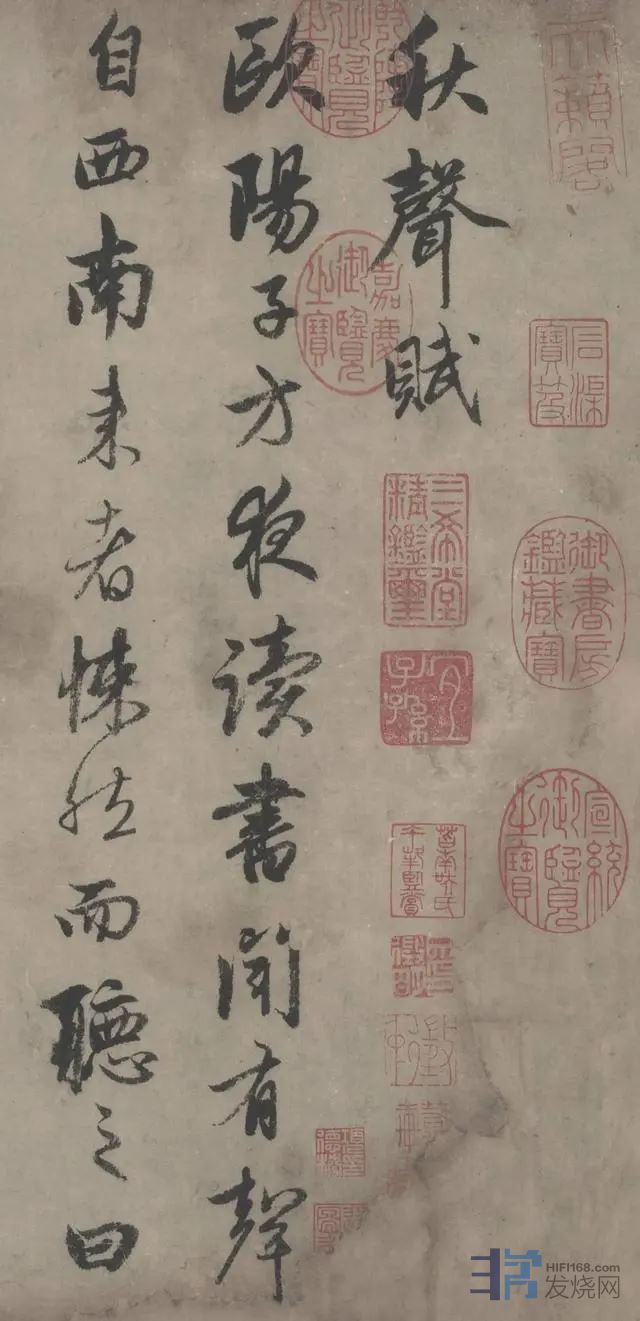 秋聲賦
歐陽子方夜讀書聞有聲
自西南来者悚然而聽之曰
天籟閣
石渠寶笈
御書房鑑藏寶
宣統御覽之寶
嘉慶御覽之寶
三希堂精鑑璽
宜子孫
HIFI168.com
发烧网